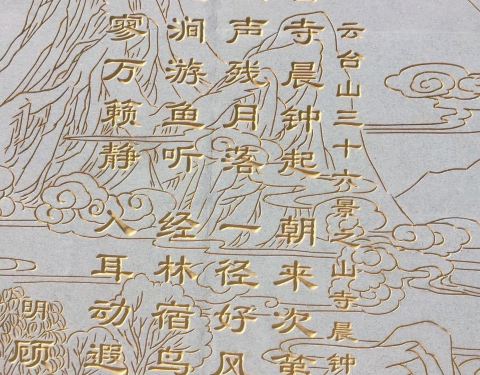 云台山三十六景之山寺晨钟
寺晨钟起 朝来次第
声残月落 一径好风
涧游鱼听 经林宿鸟
寥万籁静 入耳动遐
明 顾